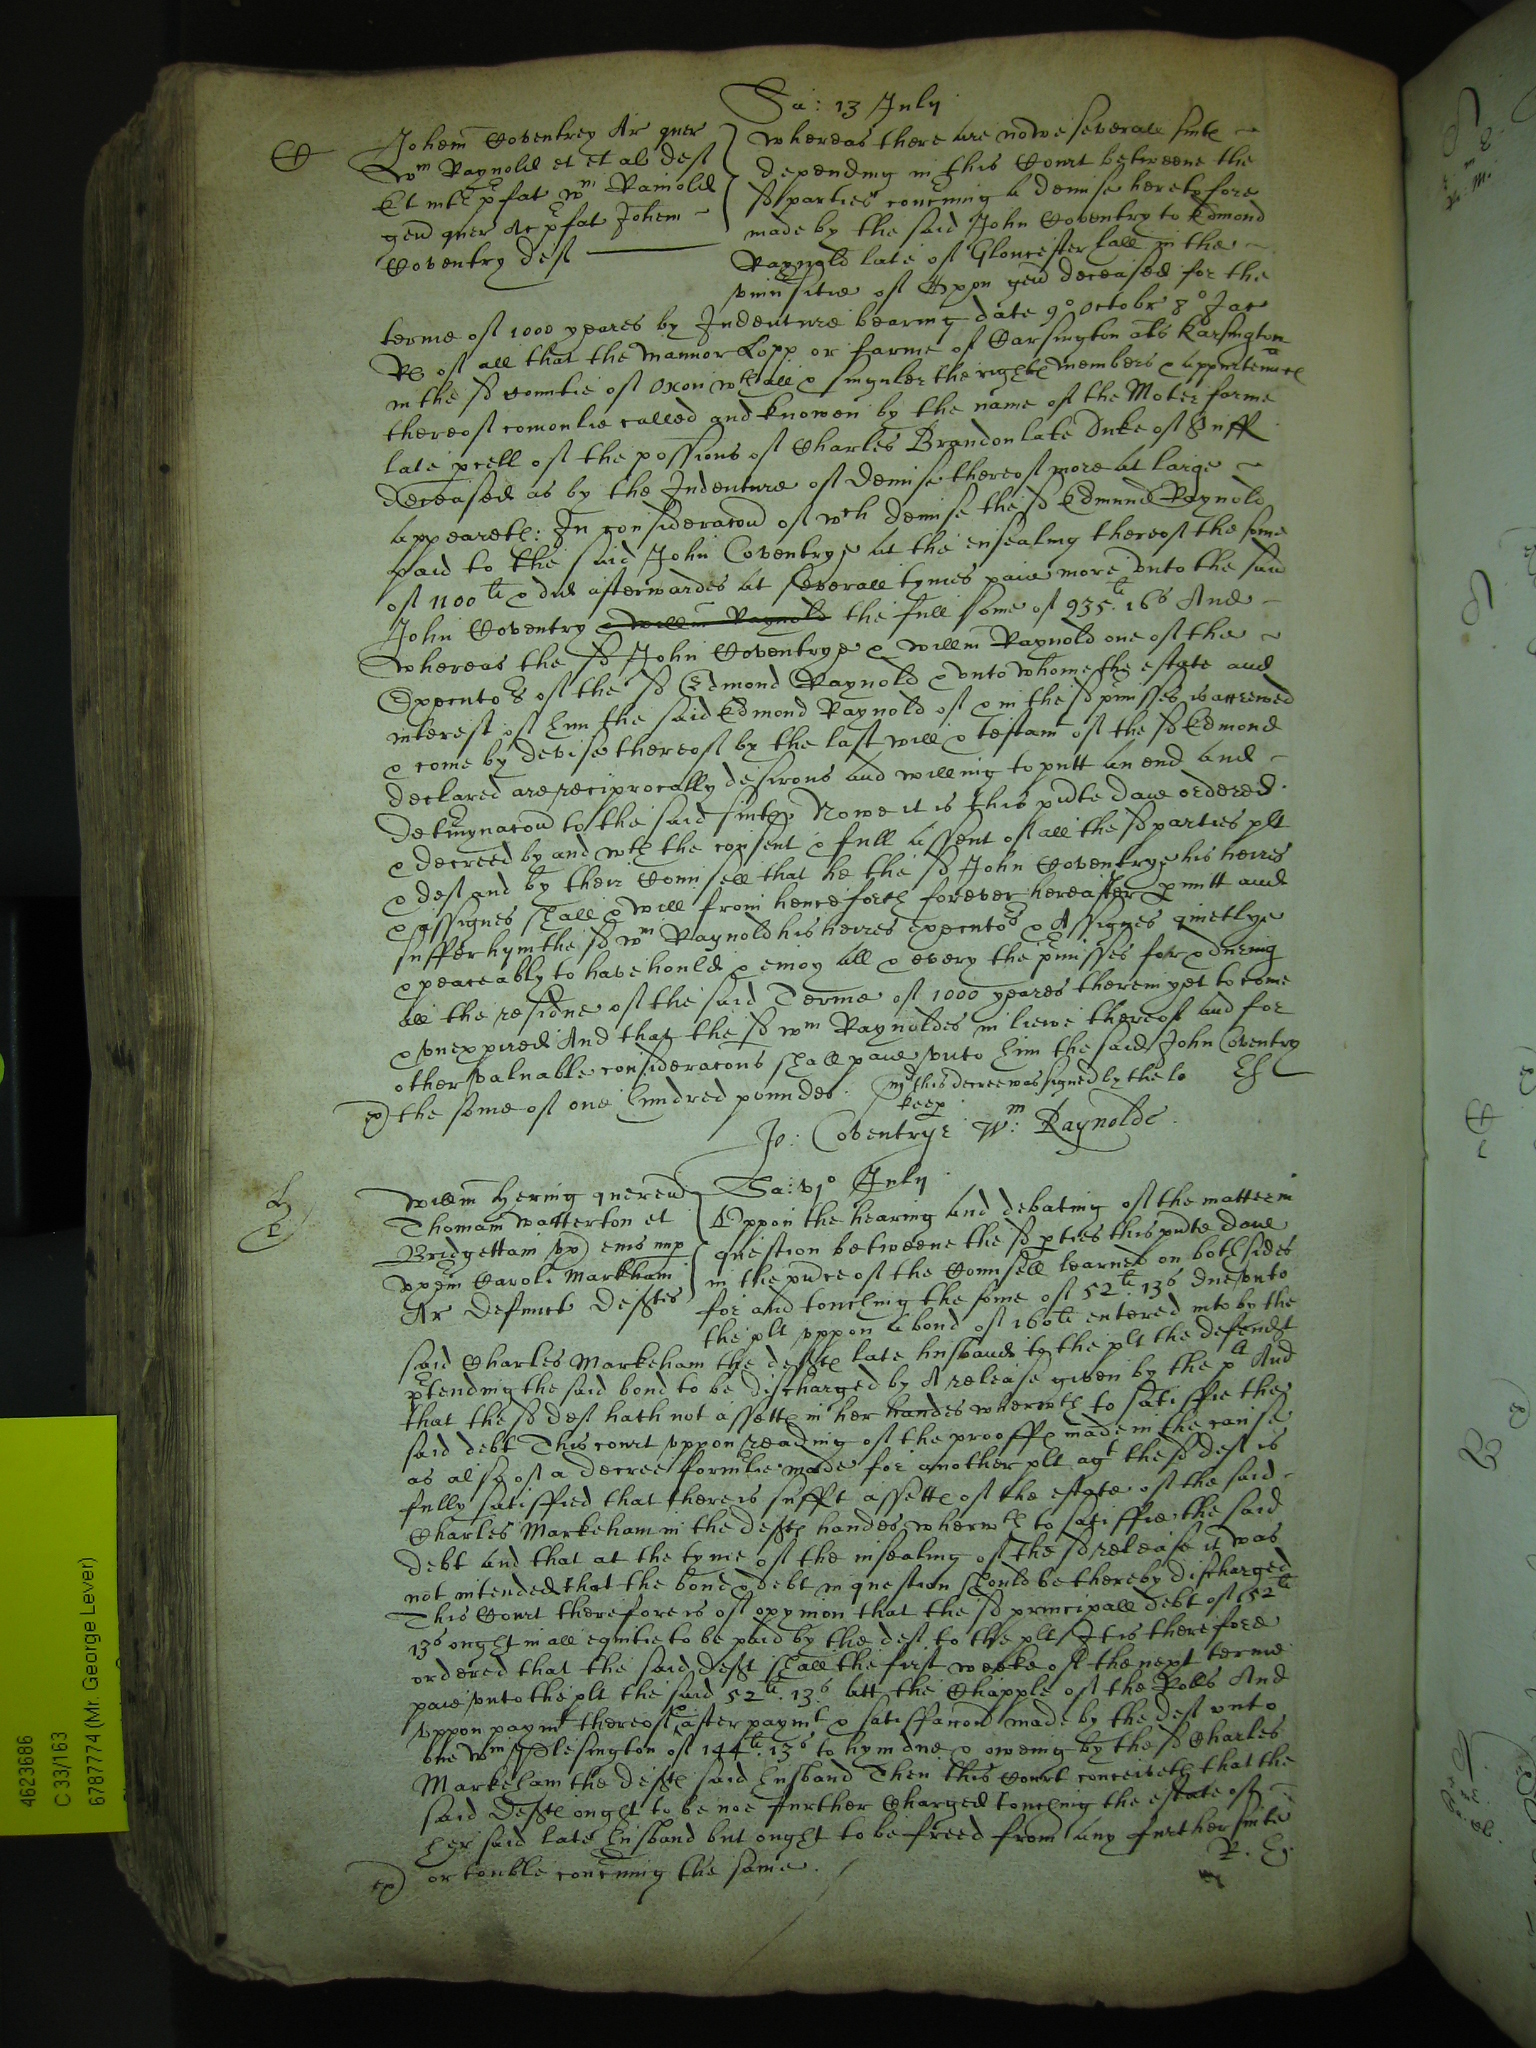 Sa: 13 July
C
Johem Coventrey Ar quer
Wm Raynold et et al def
Et int p'fat Wm Rainold
gen quer Ac p'fat Johem
Coventry def
Whereas there are nowe severall suite
depending in this Court betweene the
sd parties concning a demise heretofore
made by the said John Coventry to Edmond
Raynold late of Gloucester hall in the
univ'sitie of Oxon gen deceased for the
terme of 1000 yeares by Indenture bearing date 9o Octobr 8o Jac
Rs of all that the mannor or farme of Carsington als Karsington
in the sd countie of Oxon wth all & singuler the right members & appurtenance
thereof comonlie called and knowen by the name of the Mote farme
late pcell of the possions of Charles Brandon late Duke of Suff
deceased as by the Indenture of demise thereof more at large
appeareth: In consideracon of wch demise the sd Edmund Raynold
paid to the said John Coventrye at the ensealing thereof the some
of 1100li & did afterwardes at severall tymes paie more unto the said
John Coventry & Willm Raynold the full some of 935li. 16s And
Whereas the sd John Coventrye & Willm Raynold one of the
Executors of the sd Edmond Raynold & unto whome the estate and
interest of him the said Edmond Raynold of & in the sd pmisses is accrewed
& come by devise thereof by the last will & testam of the sd Edmond
declared are reciprocally desirous and willing to putt an end and
detmynacon to the said suite Nowe it is this pnte daie ordered
& decreed by and wth the consent & full assent of all the sd parties plt
& def and by their Counsell that he the sd John Coventrye his heires
& assignes shall & will from henceforth forever hereafter pmitt and
suffer hym the sd Wm Raynold his heires Executors & Assignes quietlye
& peaceably to have hould & enioy all & every the pmisses for & during
all the residue of the said Terme of 1000 yeares therein yet to come
& unexpired And that the sd Wm Raynoldes in liewe thereof and for
other valuable consideracons shall paie unto him the said John Coventry
ex) the some of one hundred poundes. md this decree was signed by the lo
keep
Jo: Coventrye Wm: Raynolde
Sa: vjo July
Willm Hering queren
Thomam Watterton et
Bridgettam ux) eius nup
uxem Caroli Markham
Ar defunct deftes
Uppon the hearing and debating of the matter in
question betweene the sd pties this pnte daie
in the pnce of the Counsell learned on both sides
for and touching the some of 52li. 13s due unto
the plt uppon a bond of 160li entered into by the
said Charles Markeham the defte late husband to the plt the defendt
ptending the said bond to be discharged by A release given by the plt And
that the sd def hath not assette in her handes wherewth to satisfie the
said debt This court uppon reading of the prooffe made in the cause
as also of a decree formlie made for another plt agt the sd def is
fully satisffied that there is sufft assette of the estate of the said
Charles Markeham in the defte handes wherwth to satisfie the said
debt and that at the tyme of the insealing of the sd release it was
not intended that the bond & debt in question should be thereby discharged
This Court therefore is of opynion that the sd principall debt of 52li
13s ought in all equitie to be paid by the def to the plt It is therefore
ordered that the said deft shall the first weeke of the next terme
paie unto the plt the said 52li. 13s att the Chapple of the Rolls And
uppon paymt thereof & after paymt & satisffacon made by the def unto
one Wm Plesington of 144li. 13s to hym due & oweing by the sd Charles
Markeham the defte said husband Then this Court conceiveth that the
said defte ought to be noe further Charged touching the estate of
her said late husband but ought to be freed from any further suite
ex) or trouble concning the same.
4623686
C 33/163
6787774 (Mr. George Lever)